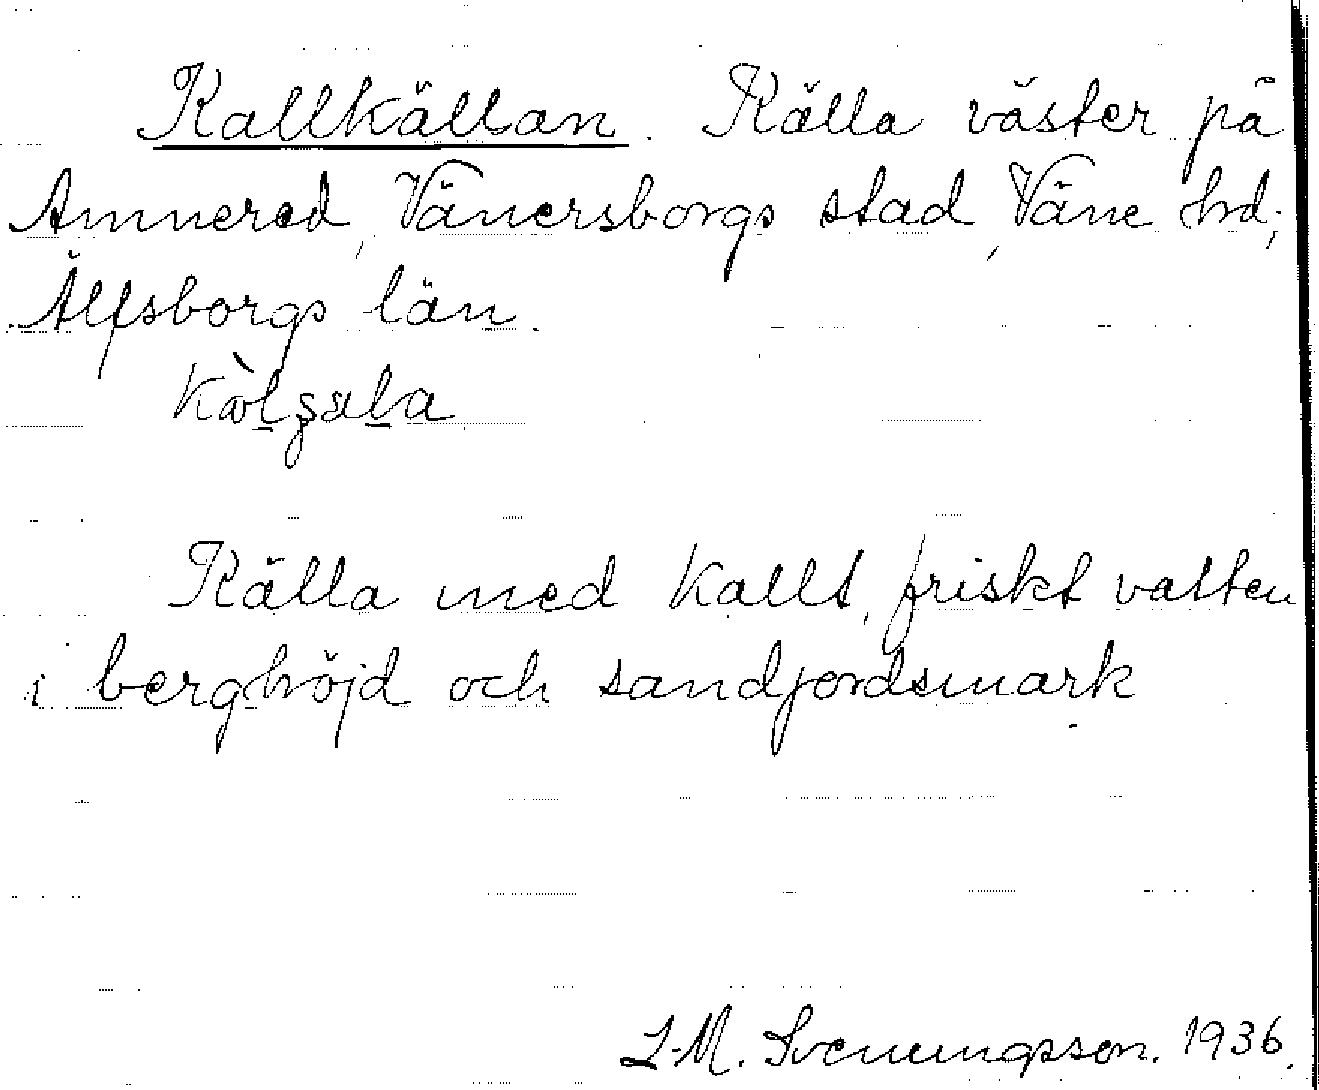 Kallkällan. Källa väster på
Amnered, Vänersborgs stad, Väne hd;
Älfsborgs län.
Källa med kallt, friskt vatten
i berghöjd och sandjordsmark
L-M. Svenungsson. 1936.